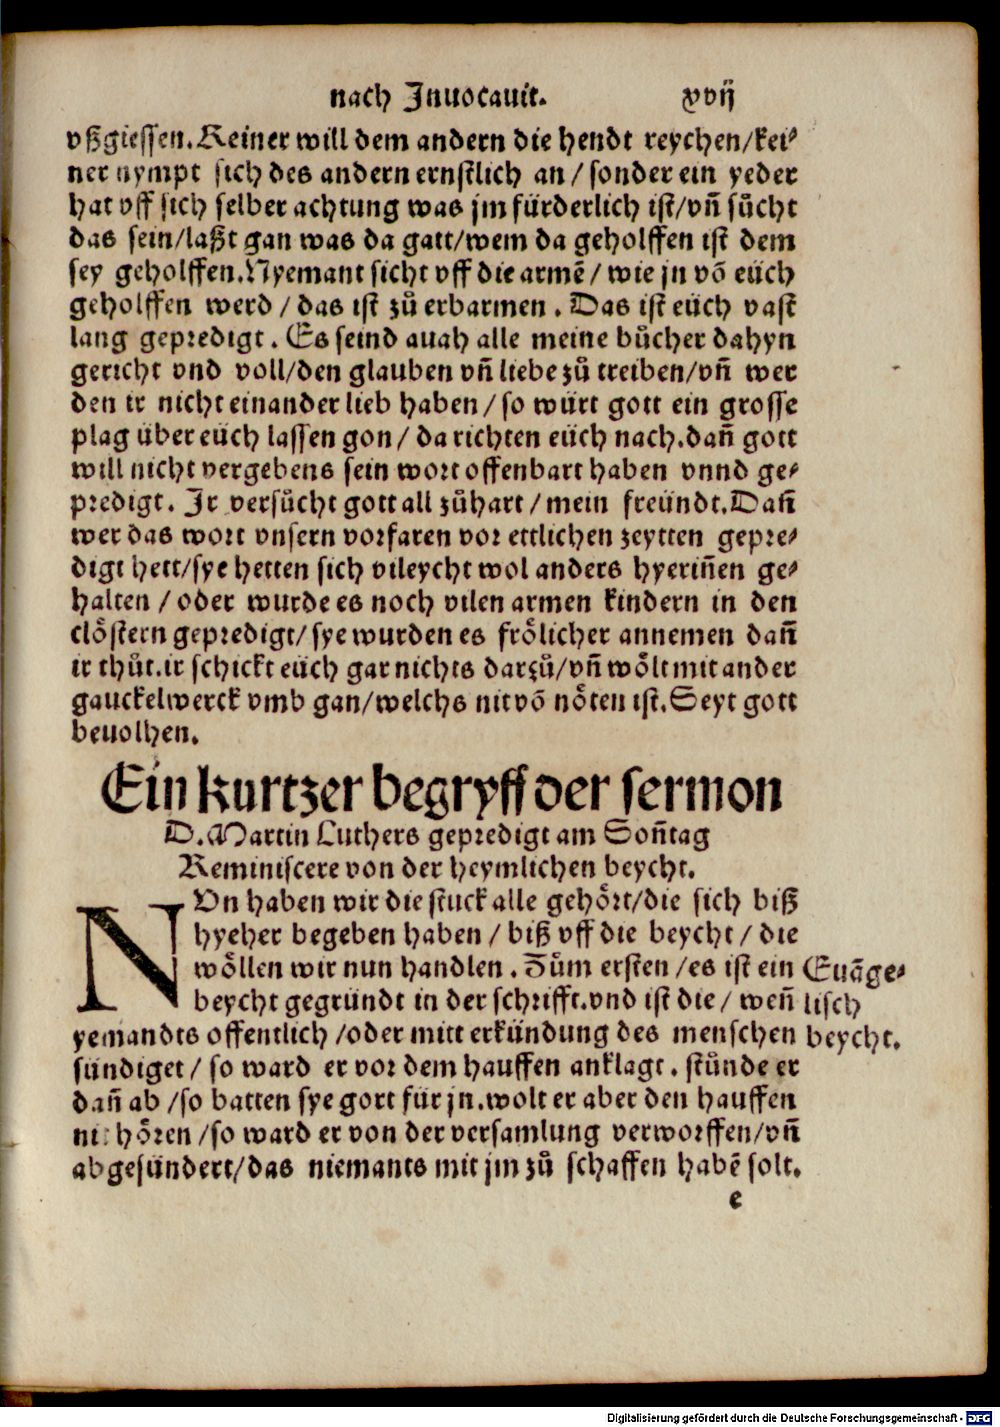 nach Inuocauit. xvij
vßgiessen. Keiner will dem andern die hendt reychen/kei⸗
ner nympt sich des andern ernstlich an / sonder ein yeder
hat vff sich selber achtung was jm fürderlich ist/vñ sůcht
das sein/laßt gan was da gatt/wem da geholffen ist dem
sey geholffen. Nyemant sicht vff die armē / wie jn võ eüch
geholffen werd / das ist zů erbarmen . Das ist eüch vast
lang gepredigt . Es seind auah alle meine bůcher dahyn
gericht vnd voll/den glauben vñ liebe zů treiben/vñ wer
den ir nicht einander lieb haben / so würt gott ein grosse
plag über eüch lassen gon / da richten eüch nach. dañ gott
will nicht vergebens sein wort offenbart haben vnnd ge⸗
predigt . Ir versůcht gott all zůhart / mein freündt. Dañ
wer das wort vnsern vorfaren vor ettlichen zeytten gepre⸗
digt hett/sye hetten sich vileycht wol anders hyeriñen ge⸗
halten / oder wurde es noch vilen armen kindern in den
clöstern gepredigt/sye wurden es frölicher annemen dañ
ir thůt. ir schickt eüch gar nichts darzů/vñ wölt mit ander
gauckelwerck vmb gan/welchs nit võ nöten ist. Seyt gott
beuolhen.
Ein kurtzer begryff der sermon
D. Martin Luthers gepredigt am Soñtag
Reminiscere von der heymlichen beycht.
NVn haben wir die stuck alle gehört/die sich biß
hyeher begeben haben / biß vff die beycht / die
wöllen wir nun handlen . Zům ersten /es ist ein Euāge⸗
beycht gegründt in der schrifft. vnd ist die / weñ lisch
yemandts offentlich /oder mitt erkündung des menschen beycht.
sündiget / so ward er vor dem hauffen anklagt . stünde er
dañ ab /so batten sye gott für jn. wolt er aber den hauffen
nit hören /so ward er von der versamlung verworffen/vñ
abgesündert/das niemants mit jm zů schaffen habē solt.
e
Digitalisierung gefördert durch die Deutsche Forschungsgemeinschaft - DFG